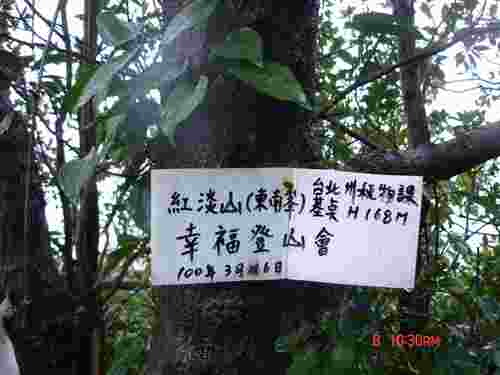 紅淡山(東南峯) 台北州殖物課
基点 H168M
幸福登山會
100年3月16日
8 10:30AM